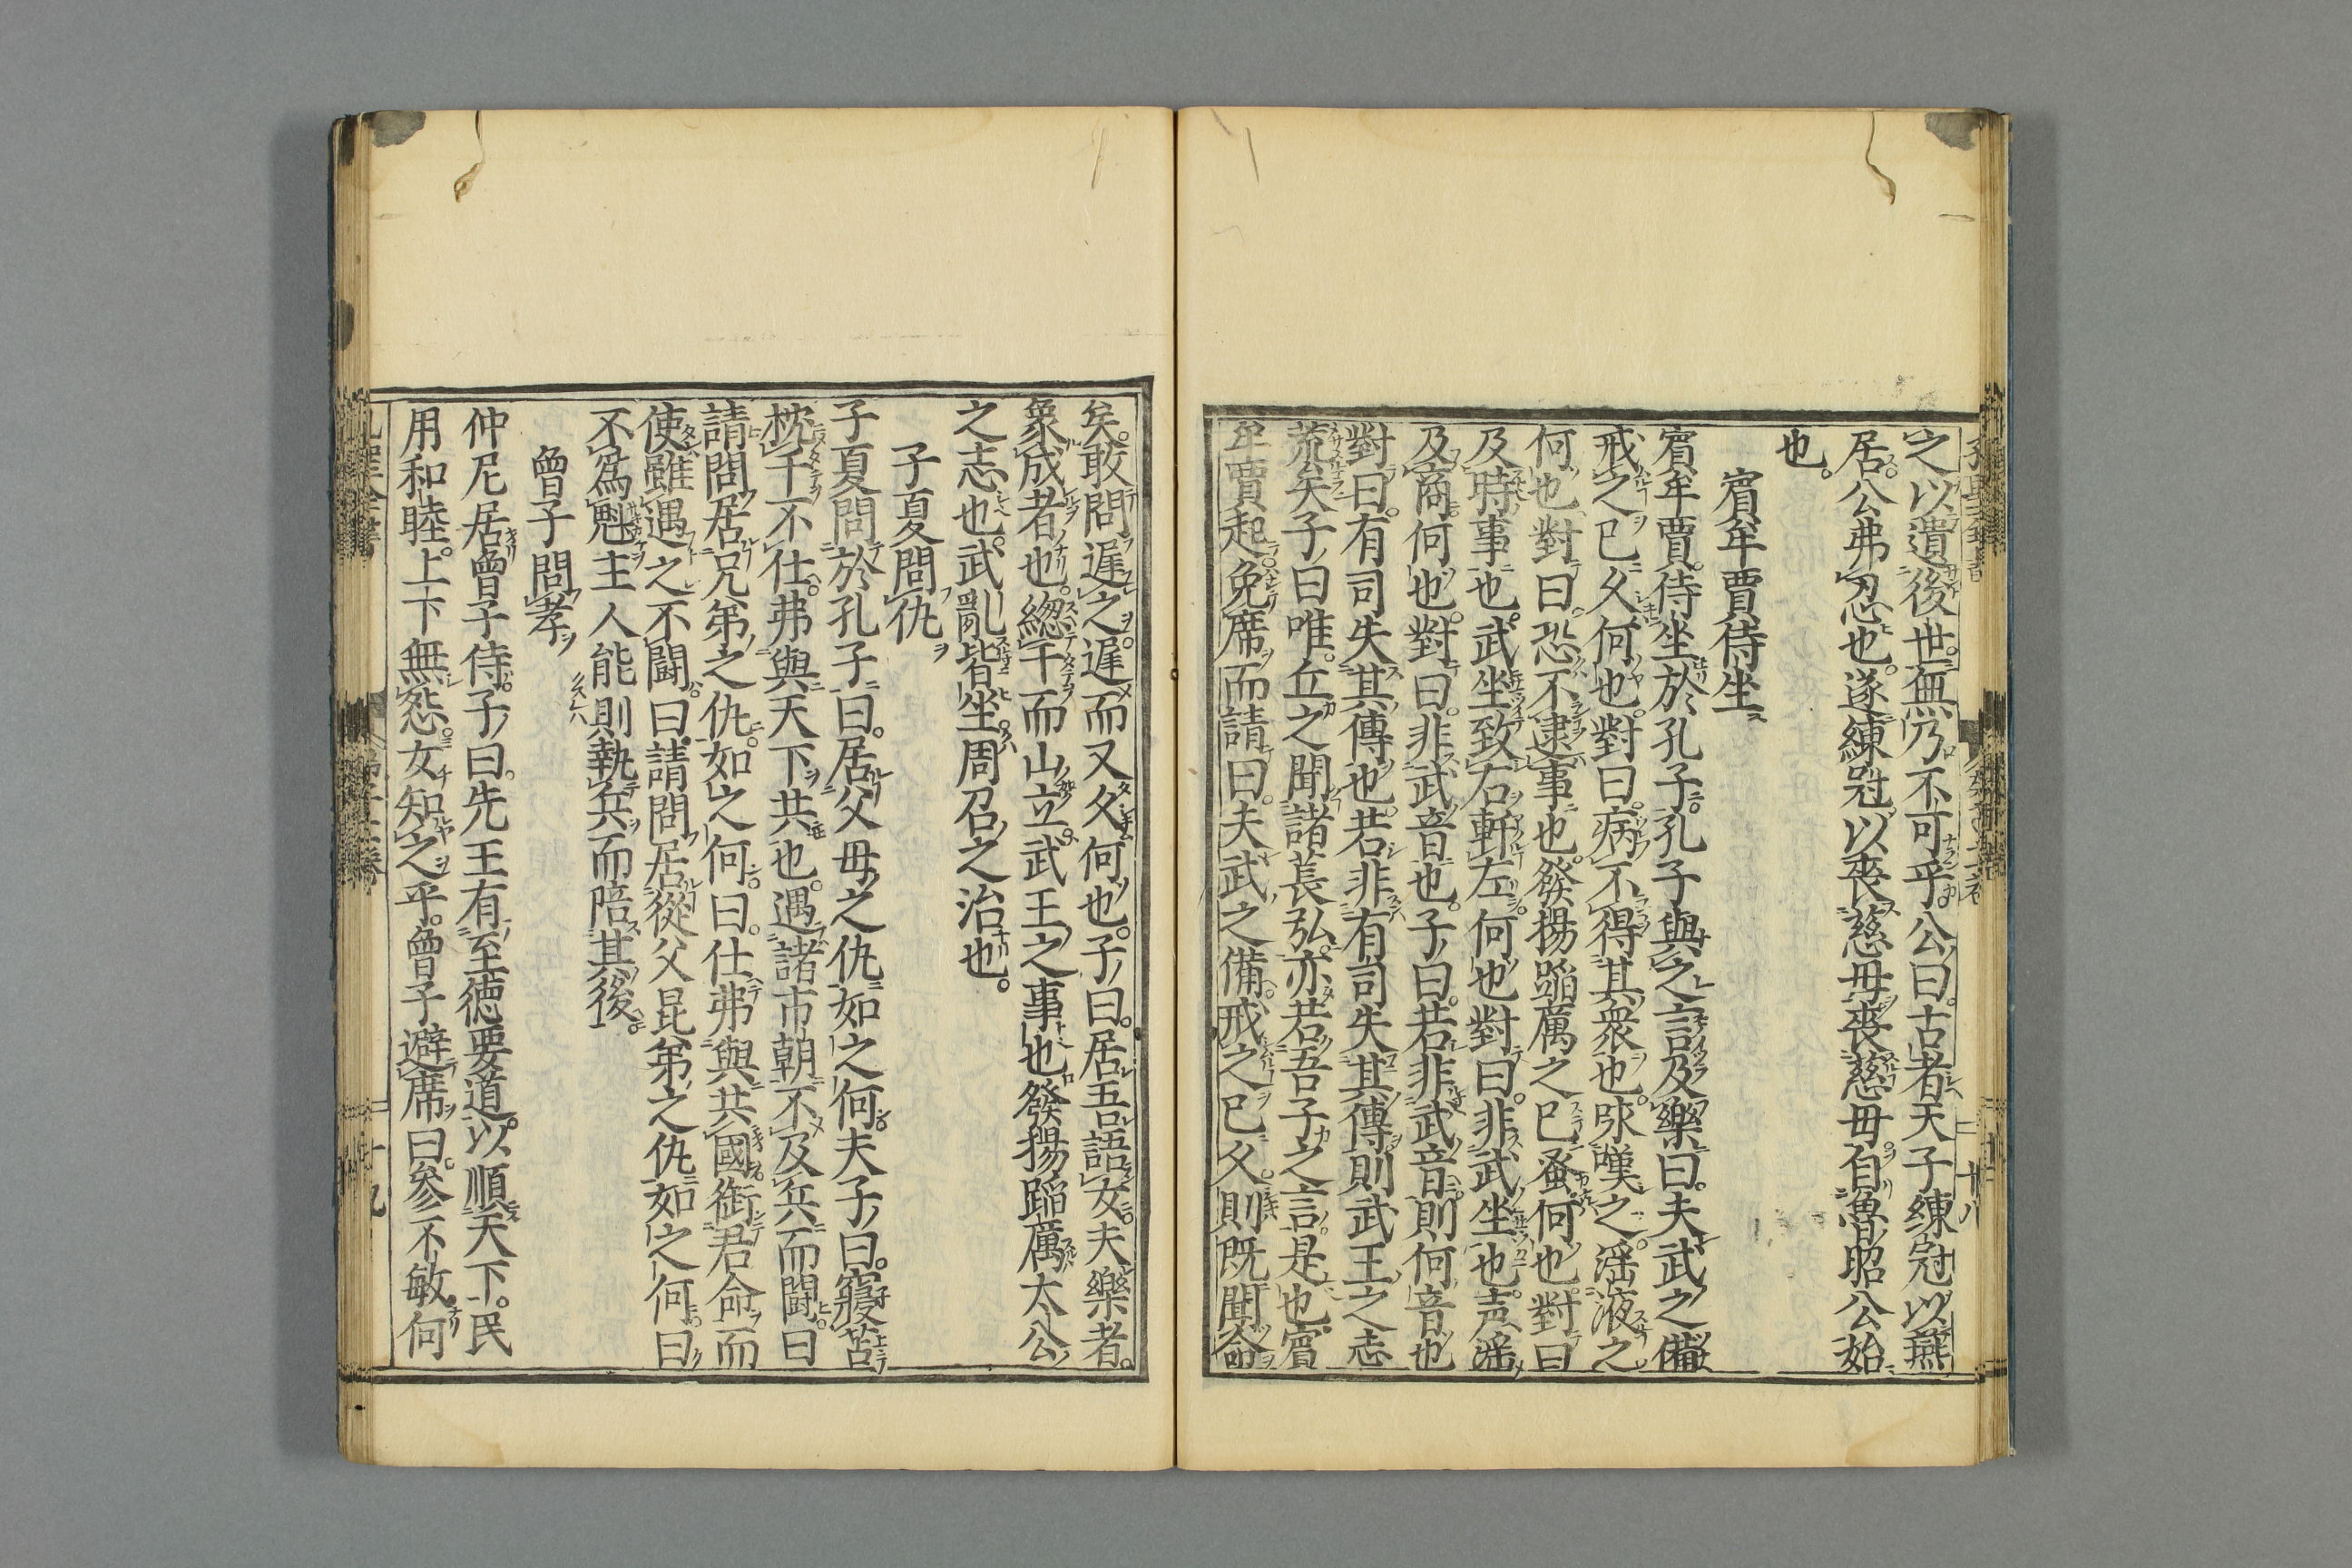 之以遺後世無乃不可乎。公曰。古者天子練冠以燕
居。公弗忍也。遂練冠以喪慈母。喪慈母自魯昭公始
也。
賓牟賈侍坐
賓牟賈侍坐於孔子。孔子與之言及樂曰。夫武之備
戒之已久何也。對曰。病不得其衆也。咏嘆之滛液之
何也。對曰。恐不逮事也。發揚蹈厲之已蚤何也。對曰
及時事也。武坐致右軒左何也。對曰。非武坐也。声滛
及商何也。對曰。非武音也。子曰。若非武音則何音也
對曰。有司失其傳也。若非有司失其傳則武王之志
荒矣。子曰唯。丘之聞諸萇弘。亦若吾子之言是也。賓
牟賈起免席而請曰。夫武之備戒之已久。則既聞命
矣。敢問遲之遲而又久何也。子曰。居吾語女。夫樂者。
象成者也。緫干而山立。武王之事也。發揚蹈厲。太公
之志也。武亂皆坐。周召之治也。
子夏問仇
子夏問於孔子曰。居父母之仇如之何。夫子曰。寢苫
枕干不仕。弗與天下共也。遇諸市朝不及兵而闘。曰
請問居兄弟之仇。如之何。曰。仕弗與共國銜君命而
使雖遇之不闘。曰。請問居從父昆弟之仇如之何。曰
不為魁主人能則執兵而陪其後。
曾子問孝
仲尼居曾子侍。子曰。先王有至徳要道。以順天下。民
用和睦。上下無怨。女知之乎。曾子避席曰。参不敏。何